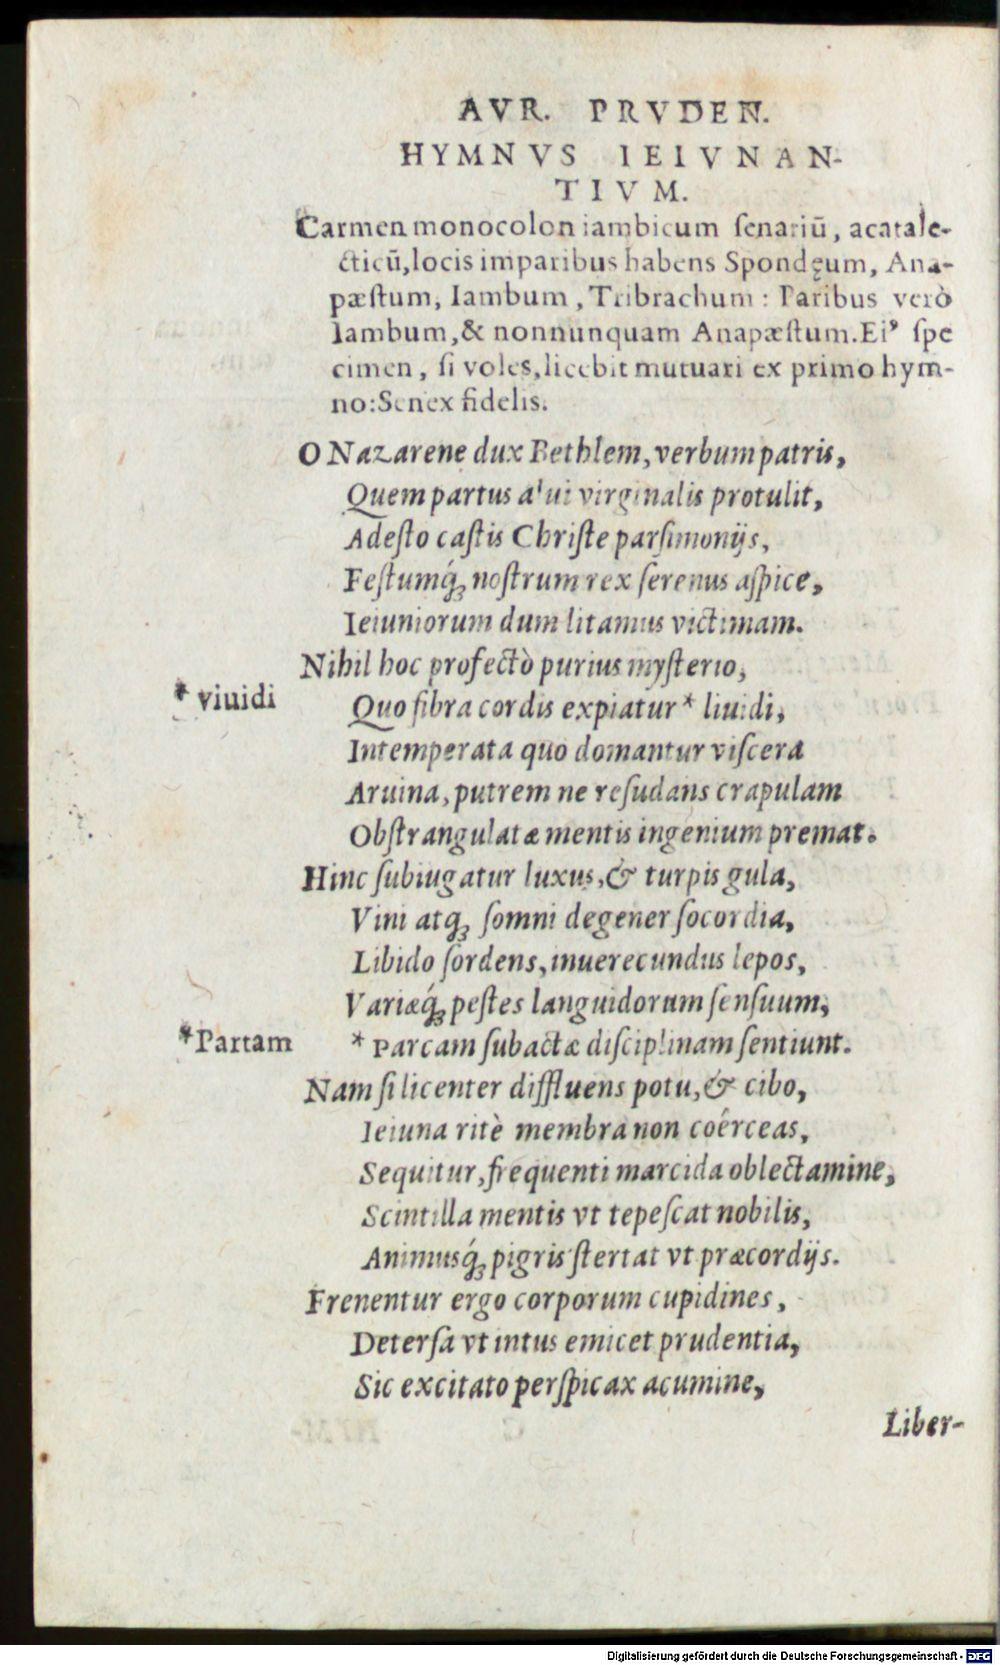 AVR. PRVDEN.
HYMNVS IEIVNAN-
TIVM.
Carmen monocolon iambicum ſenariū, acatale-
cticū, locis imparibus habens Spondęum, Ana-
pæſtum, Iambum, Tribrachum: Paribus verò
Iambum, & nonnunquam Anapæſtum. Eiꝰ ſpe
cimen, ſi voles, licebit mutuari ex primo hym-
no: Senex fidelis.
O Nazarene dux Bethlem, verbum patris,
Quem partus alui virginalis protulit,
Adeſto caſtis Chriſte parſimonijs,
Feſtumq́ꝫ noſtrum rex ſerenus aſpice,
Ieiuniorum dum litamus victimam.
Nihil hoc profectò purius myſterio,
* viuidi
Quo fibra cordis expiatur * liuidi,
Intemperata quo domantur viſcera
Aruina, putrem ne reſudans crapulam
Obſtrangulatæ mentis ingenium premat.
Hinc ſubiugatur luxus, & turpis gula,
Vini atqꝫ ſomni degener ſocordia,
Libido ſordens, inuerecundus lepos,
Variæq́ꝫ peſtes languidorum ſenſuum,
*Partam
* Parcam ſubactæ diſciplinam ſentiunt.
Nam ſi licenter diffluens potu, & cibo,
Ieiuna ritè membra non coérceas,
Sequitur, frequenti marcida oblectamine,
Scintilla mentis vt tepeſcat nobilis,
Animusq́ꝫ pigris ſtertat vt præcordijs.
Frenentur ergo corporum cupidines,
Deterſa vt intus emicet prudentia,
Sic excitato perſpicax acumine,
Liber-
Digitalisierung gefördert durch die Deutsche Forschungsgemeinschaft - DFG